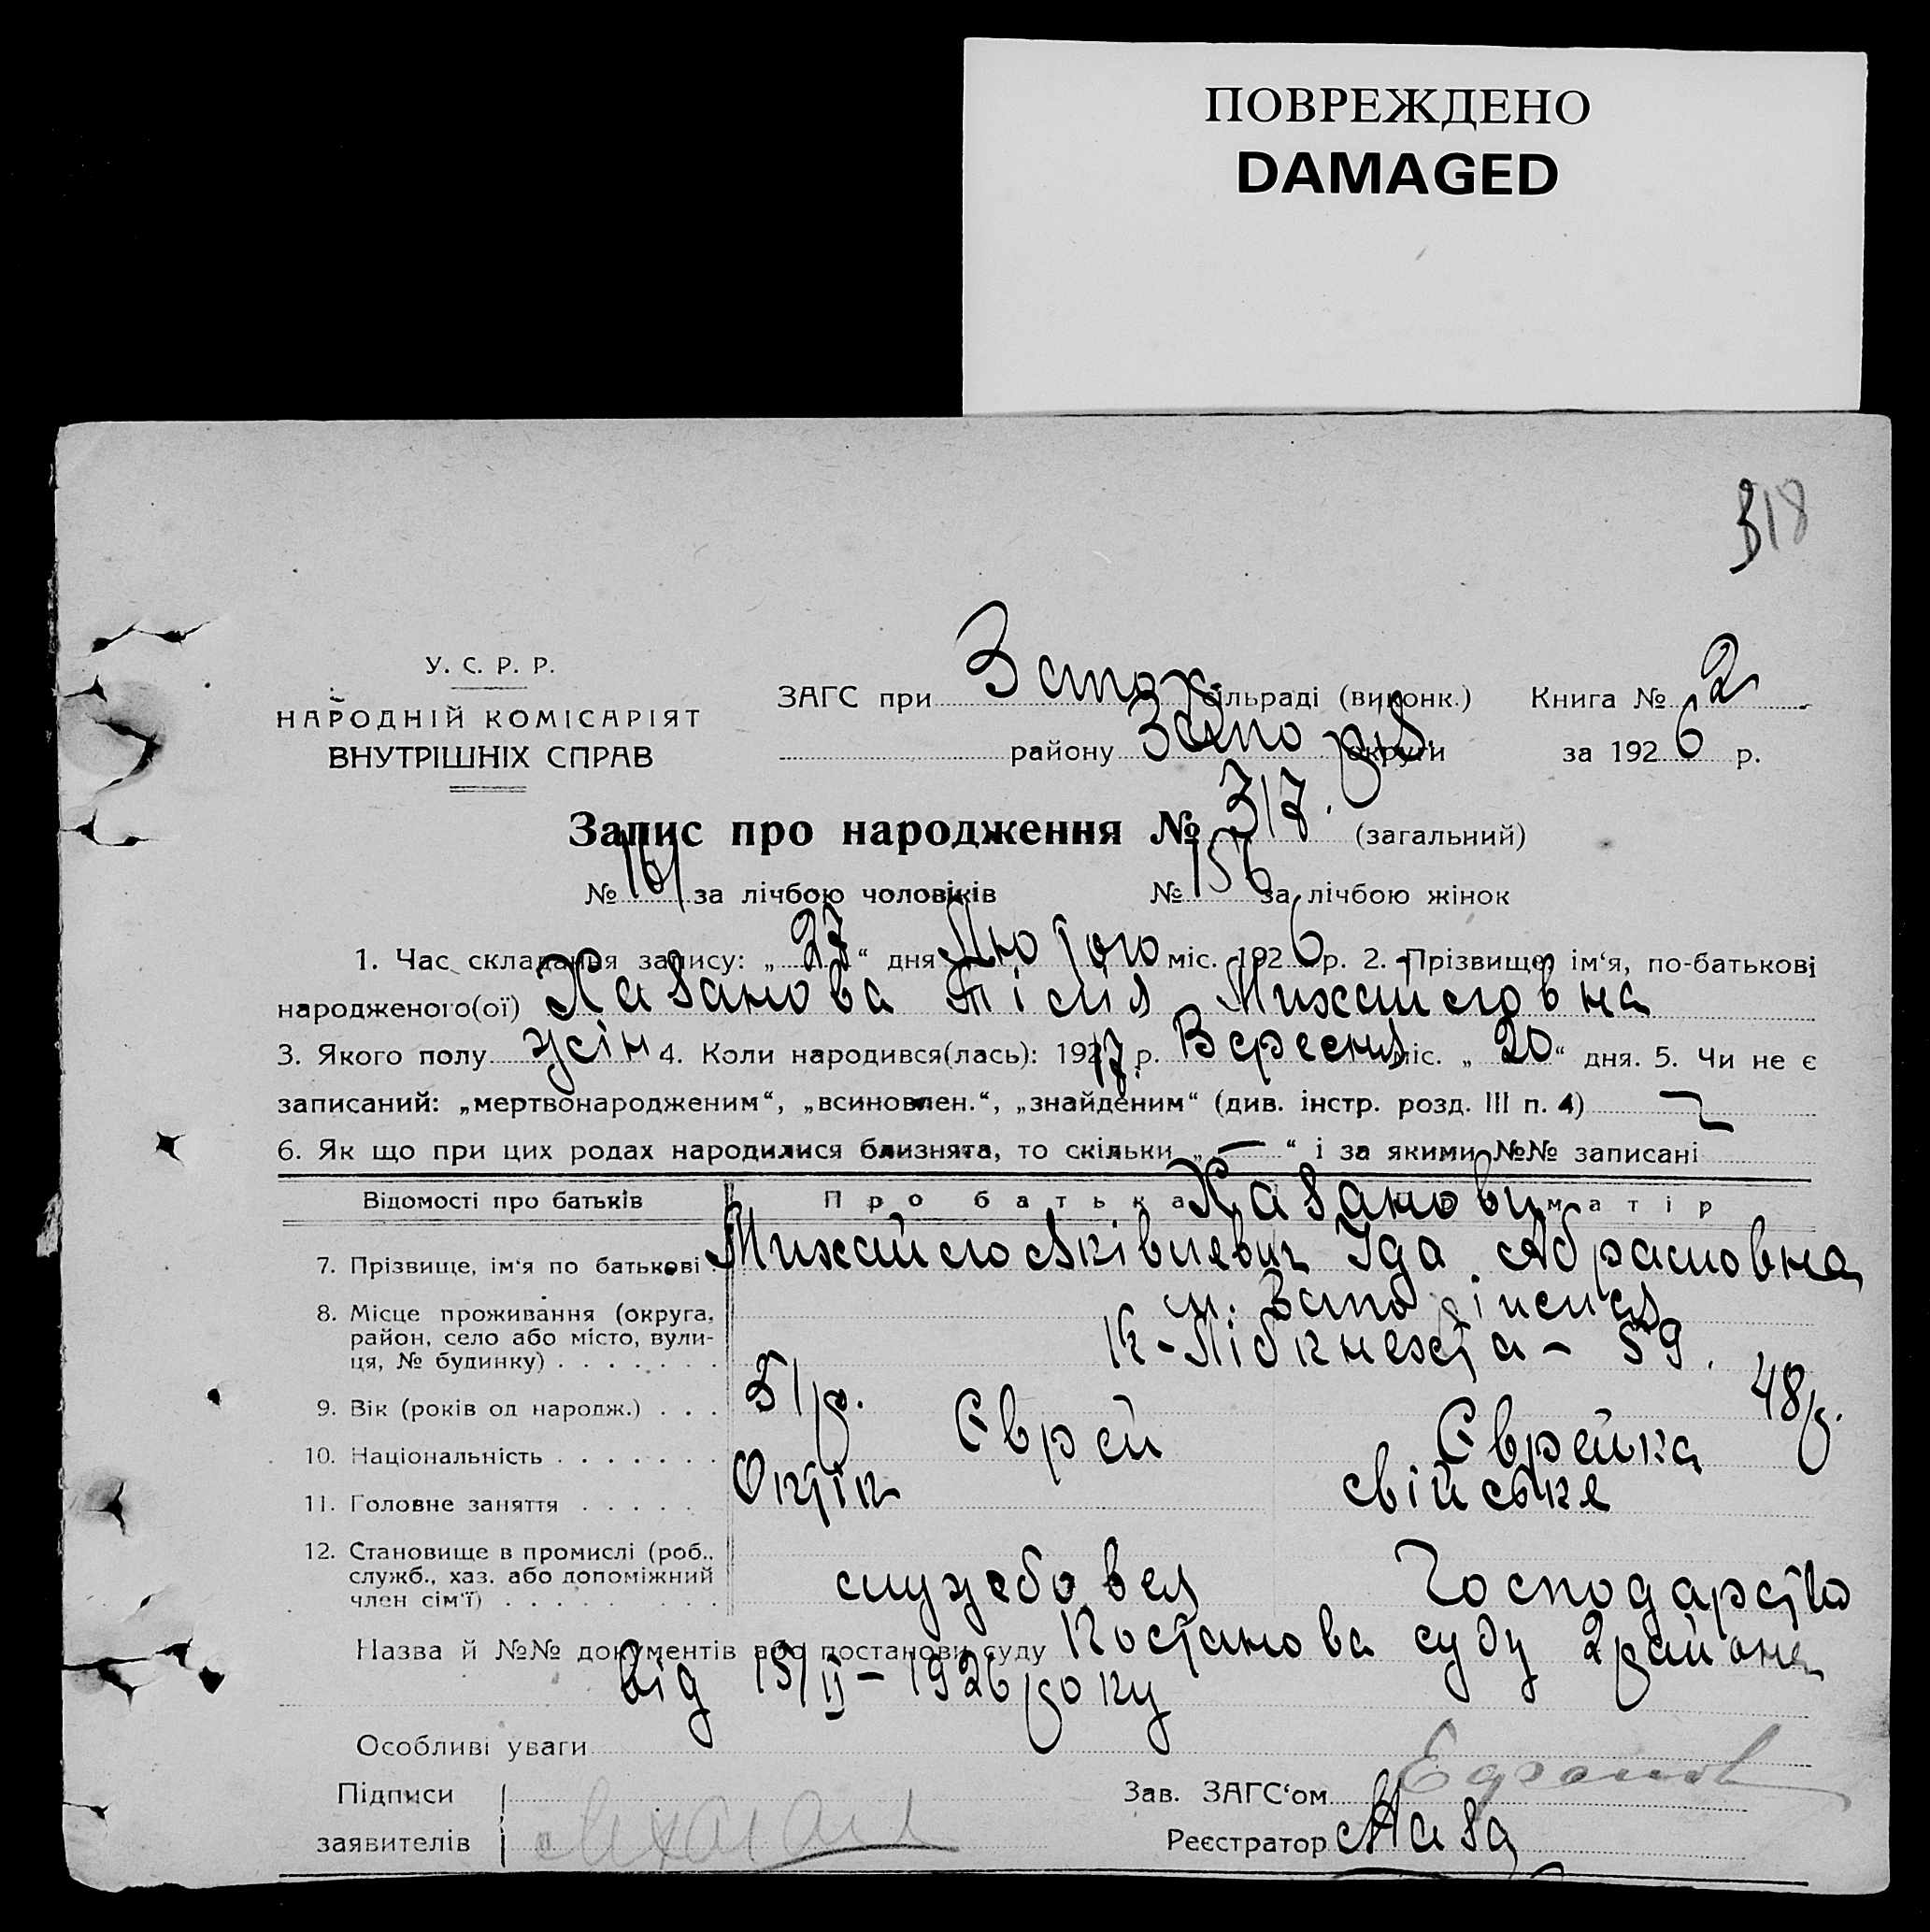 ПОВРЕЖДЕНО
DAMAGED
318
У. С. Р. Р.
НАРОДНІЙ КОМІСАРІЯТ
ВНУТРІШНІХ СПРАВ
ЗАГС при Запор. сільраді (виконк.) Книга № 2
району Запоріз. округи за 1926 р.
Запис про народження № 317. (загальний)
№ 161 за лічбою чоловіків № 156 за лічбою жінок
1. Час складання запису: „27“ дня Лютого міс. 1926 р. 2. Прізвище, ім‘я, по-батькові
народженого(ої) Хазанова Михайловна
3. Якого полу жін 4. Коли народився(лась): 1917 р. Вересня міс. „20“ дня. 5. Чи не є
записаний: „мертвонародженим“, „всиновлен.“, „знайденим“ (див. інстр. розд. III п. 4) —
6. Як що при цих родах народилися близнята, то скільки „—“ і за якими №№ записані
Відомості про батьків Про батька Хазанови матір
7. Прізвище, ім‘я по батькові Михайло Яківлевич Іда Абрамовна
8. Місце проживання (округа, район, село або місто, вули-ця, № будинку) м. Запоріжжя
К-Лібкнехта - 59.
9. Вік (років од народж.) 51 р. 48 р.
10. Національність Єврей Єврейка
11. Головне заняття свійське
12. Становище в промислі (роб., служб., хаз. або допоміжний член сім‘ї) службовец Господарство
Назва й №№ документів або постанови суду Постанова суду 2 района
від 15/II - 1926 року
Особливі уваги
Підписи
заявителів
Зав. ЗАГС‘ом
Реєстратор